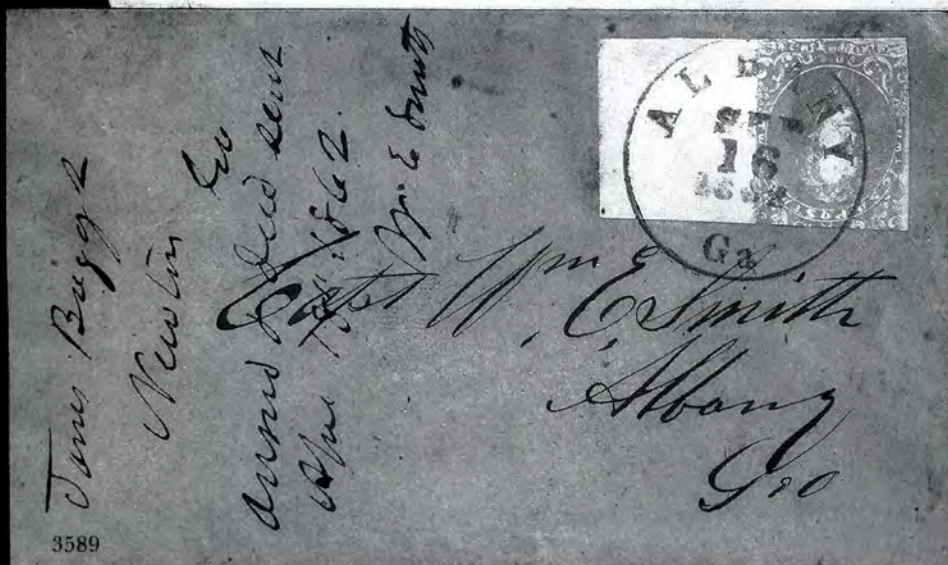 ALBANY
SEP
16
1862
Ga
Capt Wm. E. Smith
Albany
Geo
Jones Briggs
Newton
Ga
and Deed sent
1862.
Wm E Smith
3589